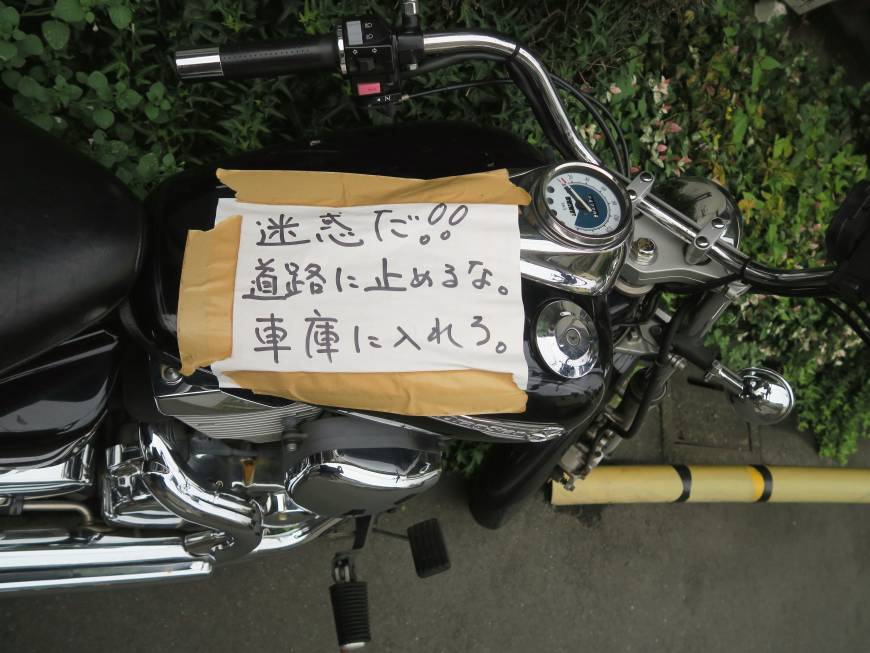 迷惑だ!!
道路に止めるな。
車庫に入れろ。